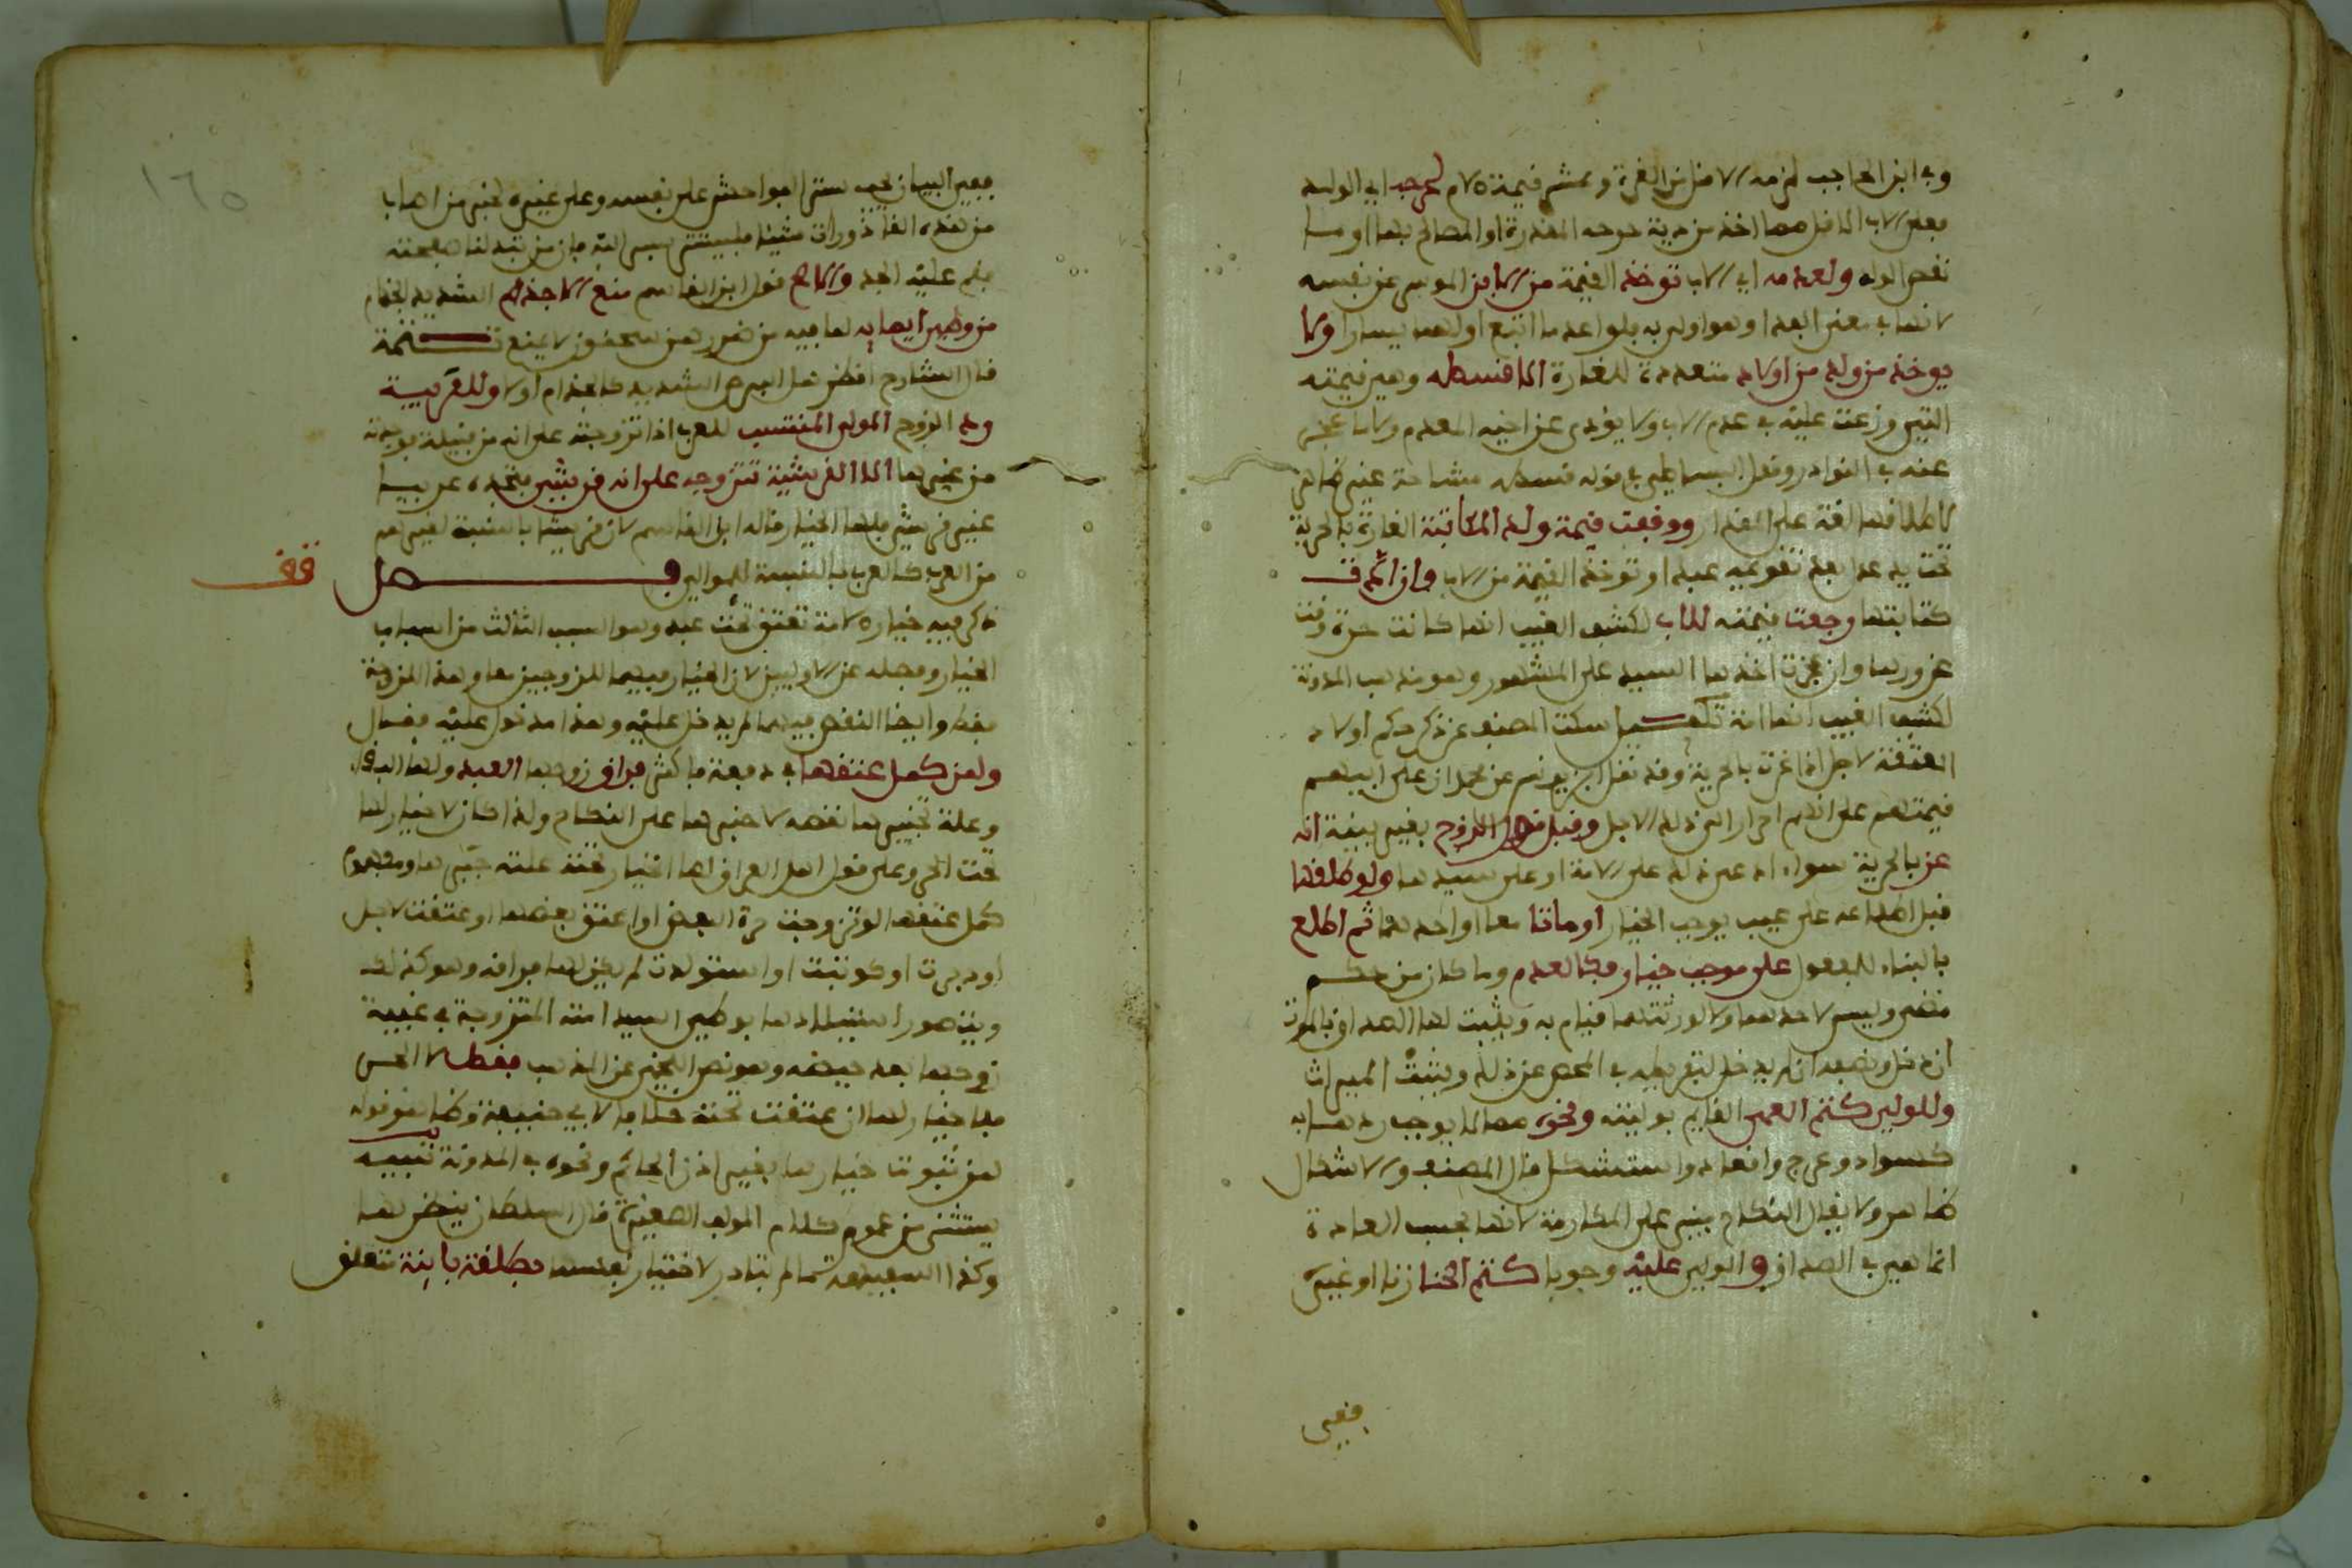 وفي ابن الحاجب لزمه الاقل من الغرة وعشر قيمة الام لجرحه اي الولد
فعلى الاب الاقل مما اخذ من دية جرحه المقدرة او المصالح بها او ما
نقص الولد ولعدمه اي الاب توخذ القيمة من الابن الموسر عن نفسه
لانها في معنى الفدا وهو اولى به فلو اعدما اتبع اولهما يسارا ولا
يوخذ من ولد من اولاد متعددة للغارة الا قسطه وهي قيمته
التي وزعت عليه في عدم الاب ولا يؤدي عن اخيه المعدم
عنه في النوادر وقول البساطي في قوله قسطه مشاحة غير ظاهر
لاطلاقها لغة على المقدار ووقفت قيمة ولد المكاتبة الغارة بالحرية
تحت يد عدل بعد تقويمه عبدا وتوخذ القيمة من الاب فان ادت
كتابتها رجعت قيمته للاب لكشف الغيب انها كانت حرة وقت
غرورها وان عجزت اخذها السيد على المشهور وهو مذهب المدونة
لكشف الغيب انها امة تكميل سكت المصنف عن ذكر حكم اولاد
المعتقة لاجل اذا غرت بالحرية وقد نقل ابن يونس عن محمد ان على ابيهم
قيمتهم على انهم احرار الى ذلك الاجل وقبل قول الزوج بغير بينة انه
غر بالحرية سواء ادعى ذلك على الامة او على سيدها ولو طلقها
قبل اطلاعه على عيب يوجب الخيار او ماتا معا او احدهما ثم اطلع
بالبناء للمفعول على موجب خيار فكالعدم وما كان من حكم
مضى وليس لاحدهما ولا لورثتهما قيام به ويثبت لها الصداق بالموت
ان دخل ونصفه ان لم يدخل لتفريطه في الفحص عن ذلك ويثبت الميراث
وللولي كتم العمى القايم بوليته ونحوه مما لا يوجب ردها به
كسواد وعرج واقعاد واستشكل قال المصنف والاشكال
ظاهر ولا يقال النكاح بني على المكارمة لانها بحسب العادة
انما هي في الصداق والولي عليه وجوبا كتم الخنا زنا او غيره
ففي
١٦٥
ففي البيان يجب ستر الفواحش على نفسه وعلى غيره لخبر من اصاب
من هذه القاذورات شيئا فليستتر بستر الله فان من يبد لنا صفحته
نقم عليه الحد والاصح قول ابن القاسم منع الاجذم الشديد الجذام
من وطئ امايه لما فيه من ضررهن سحنون لا يمنع تتمة
قال الشارح انظر هل البرص الشديد كالجذام او لا وللعربية
رد الزوج المولى المنتسب للعرب اذا تزوجته على انه من قبيلة فوجدته
من غيرها الا القرشية تتزوجه على انه قرشي فتجده عربيا
غير قرشي فلها الخيار قاله ابن القاسم لان قريشا بالنسبة لغيرهم
من العرب كالعرب بالنسبة للموالي فصل
قف
ذكر فيه خيار الامة تعتق تحت عبد وهو السبب الثالث من اسباب
الخيار وفصله عن الاولين لان الخيار فيهما للزوجين معا وهذا للزوجة
فقط وايضا النقص فيهما لم يدخل عليه وهذا مدخول عليه فقال
ولمن كمل عتقها في دفعة فاكثر فراق زوجها العبد ولها البقاء
وعلة تخييرها نقصه لا جبرها على النكاح ولذا كان لا خيار لها
تحت الحر وعلى قول اهل العراق لها الخيار تحته علته جبرها ومفهوم
كمل عتقها لو تزوجت حرة البعض او اعتق بعضها او عتقت لاجل
او دبرت او كوتبت او استولدت لم يكن لها فراقه وهو كذلك
ويتصور استيلادها بوطئ السيد امته المتزوجة في غيبة
زوجها بعد حيضة وهو نص اللخمي عن المذهب فقط لا الحر
فلا خيار لها ان عتقت تحته خلافا لابي حنيفة وظاهر قوله
لمن ثبوت خيارها بغير اذن الحاكم ونحوه في المدونة تنبيه
يستثنى من عموم كلام المولف الصغيرة قال السلطان ينظر لها
وكذا السفيهة ما لم تبادر لاختيار نفسها بطلقة باينة تتعلق